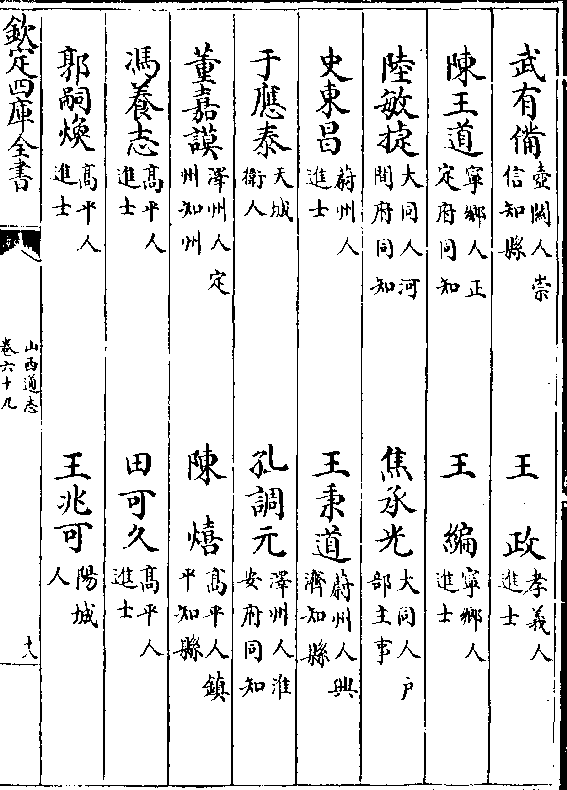 武有備壺關人崇信知縣
王政孝義人進士
陳王道寧鄉人正定府同知
王編寧鄉人進士
陸敏捷大同人河間府同知
焦承光大同人户部主事
史東昌蔚州人進士
王秉道蔚州人興濟知縣
于應泰天城衛人
孔調元澤州人淮安府同知
董嘉謨澤州人定州知州
陳熺高平人鎮平知縣
馮養志高平人進士
田可久高平人進士
郭嗣煥高平人進士
王兆可陽城人
欽定四庫全書
山西通志
卷六十九
十八